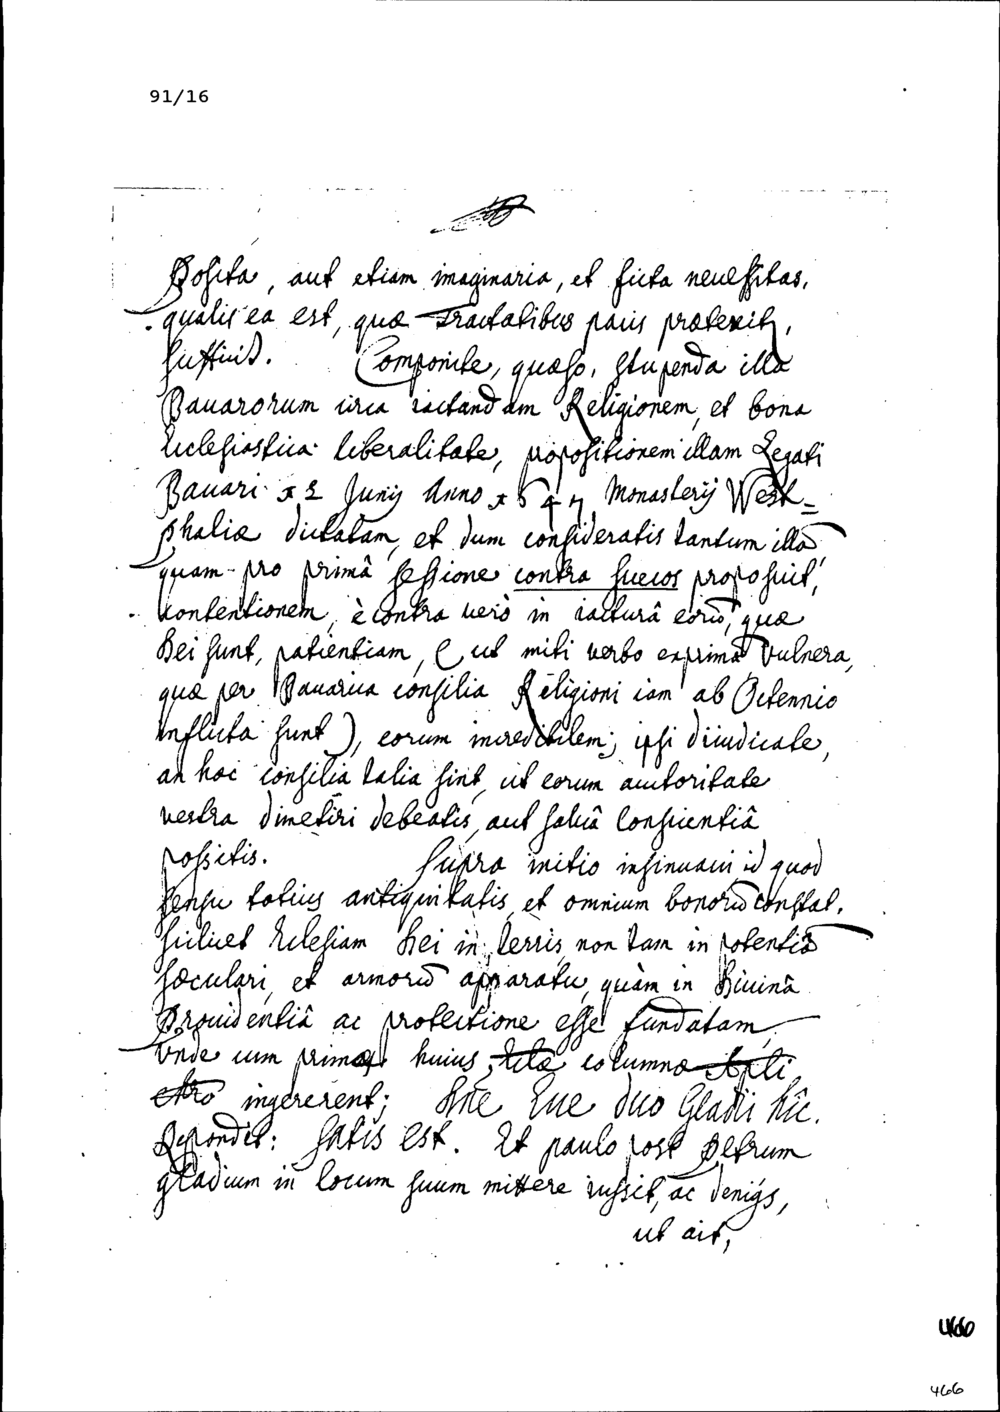 91/16
Posita, aut etiam imaginaria, et ficta necessitas,
qualis ea est, quæ Tractatibus pacis prætexit,
sufficit. Componite, quæso, stupenda illa
Bauarorum circa iactandam Religionem, et bona
Ecclesiastica liberalitate, propositionem illam Legati
Bauari 12 Junij Anno 1647 Monasterij West=
phaliæ dictatam, et dum consideratis tantum illã
quam pro primâ sessione contra suecos proposuit,
contentionem, è contra verò in iacturâ eorũ, quæ
Dei sunt, patientiam, (ut miti verbo exprimã vulnera,
quæ per Bauarica consilia Religioni iam ab Octennio
inflicta sunt), eorum incredibilem; ipsi diiudicate,
an hæc consilia talia sint, ut eorum auctoritate
vestra dimetiri debeatis, aut saluâ Conscientiâ
possitis. Supra initio insinuaui id quod
sensu totius antiquitatis, et omnium bonorũ constat,
scilicet Ecclesiam Dei in terris, non tam in potentiâ
sæculari, et armorũ apparatu, quàm in Diuinâ
Prouidentiâ ac protectione esse fundatam,
Vnde cum primæ huius columnæ
ingererent; Dñe Ecce duo Gladii hîc.
Respondit: Satis est. Et paulo post Petrum
gladium in locum suum mittere iussit, ac deniqs,
ut ait,
466
466